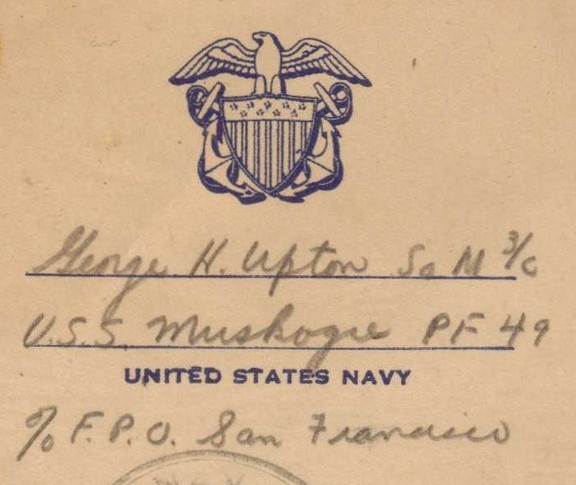 George H. Upton So M 3/c
U.S.S. Muskogie PF 49
UNITED STATES NAVY
℅ F.P.O. San Francisco